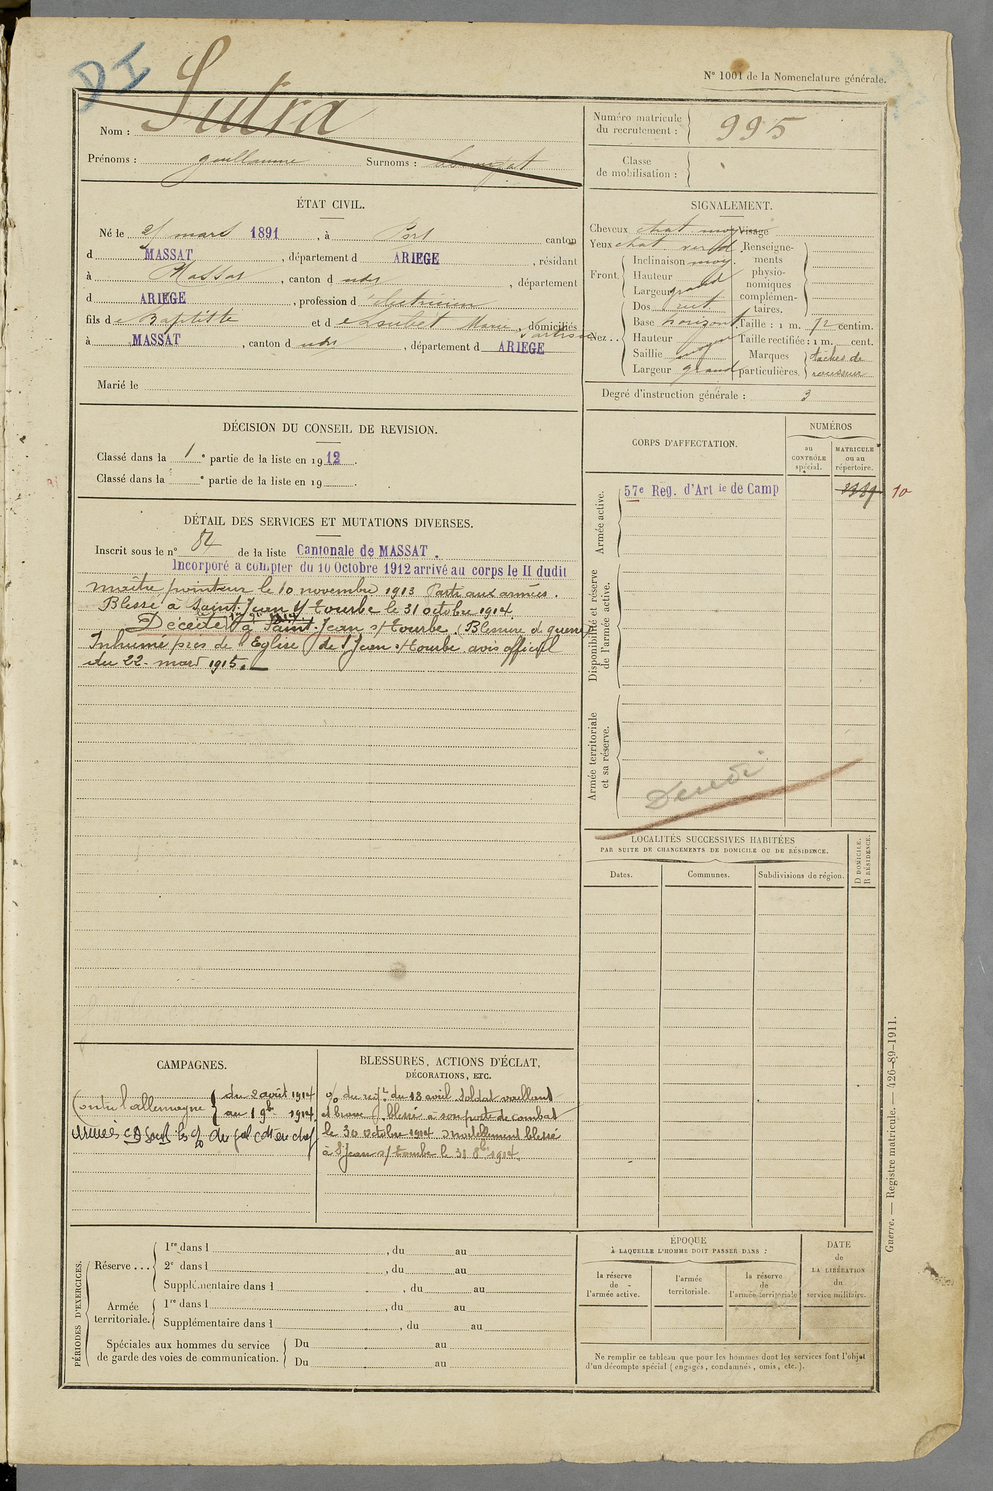 DI
N° 1001 de la Nomenclature générale.
Nom : Sutra
Prénoms : guillaume Surnoms :
Numéro matricule du recrutement : 995
Classe de mobilisation :
ÉTAT CIVIL.
Né le mars 1891, à Port canton
d MASSAT, département d ARIEGE, résidant
à Massat, canton d udt, département
d ARIEGE, profession d électricien
fils de Baptiste et de Loubet Marie, domiciliés
à MASSAT, canton d udt, département d ARIEGE
Marié le
SIGNALEMENT.
Cheveux chat moy Visage
Yeux chat. verd.
Front. Inclinaison moy.
Hauteur
Largeur grand
Nez... Dos rect
Base horizont.
Hauteur moyen
Saillie moyen
Largeur grand
Renseignements physionomiques complémentaires.
Taille : 1 m. 72 centim.
Taille rectifiée : 1 m. cent.
Marques particulières. taches de rousseur
Degré d'instruction générale : 3
DÉCISION DU CONSEIL DE REVISION.
Classé dans la 1e partie de la liste en 1912.
Classé dans la e partie de la liste en 19 .
DÉTAIL DES SERVICES ET MUTATIONS DIVERSES.
Inscrit sous le n° 84 de la liste Cantonale de MASSAT.
Incorporé a compter du 10 Octobre 1912 arrivé au corps le 11 dudit
maître pointeur le 10 novembre 1913 Parti aux armées.
Blessé à Saint-Jean s/ Tourbe le 31 octobre 1914
Décédé 1er 9bre 1914 à Saint-Jean s/ Tourbe. (Blessure de guerre)
Inhumé près de l'Eglise de St Jean s/ Tourbe. avis officiel
du 22 mars 1915.
CORPS D'AFFECTATION.
NUMÉROS
au CONTRÔLE spécial.
MATRICULE ou au répertoire.
Armée active.
57e Reg. d'Art ie de Camp
10
Disponibilité et réserve de l'armée active.
Armée territoriale et sa réserve.
Décédé
LOCALITÉS SUCCESSIVES HABITÉES
PAR SUITE DE CHANGEMENTS DE DOMICILE OU DE RÉSIDENCE.
Dates. Communes. Subdivisions de région. D DOMICILE. R RÉSIDENCE.
CAMPAGNES.
Contre l'allemagne du 2 août 1914
au 1 9bre 1914
BLESSURES, ACTIONS D'ÉCLAT,
DÉCORATIONS, ETC.
O/ du régt du 18 avril. Soldat vaillant
et brave, blessé à son poste de combat
le 30 octobre 1914 mortellement blessé
à St Jean s/ Tourbe le 31 8bre 1914.
PÉRIODES D'EXERCICES.
Réserve... 1re dans l , du au
2e dans l , du au
Supplémentaire dans l , du au
Armée territoriale. 1re dans l , du au
Supplémentaire dans l , du au
Spéciales aux hommes du service de garde des voies de communication. Du au
Du au
ÉPOQUE
À LAQUELLE L'HOMME DOIT PASSER DANS :
la réserve de l'armée active.
l'armée territoriale.
la réserve de l'armée territoriale
DATE de LA LIBÉRATION du service militaire.
Ne remplir ce tableau que pour les hommes dont les services font l'objet
d'un décompte spécial (engagés, condamnés, omis, etc.).
Guerre. — Registre matricule. — 426-89-1911.